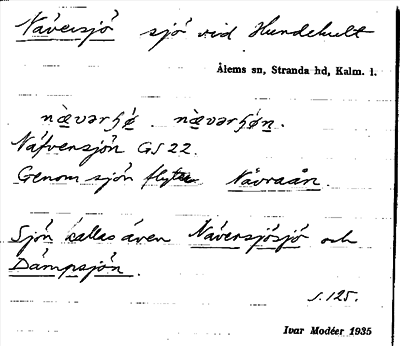 Näversjö sjö vid Hundekult
Ålems sn, Stranda hd, Kalm. l.
næ̀vərɧø̄ . næ̀vərɧøn .
Näfversjön GS 22.
Genom sjön flyter Nävraån.
Sjön kallas även Näversjösjö och
Dämpsjön.
s. 125.
Ivar Modéer 1935